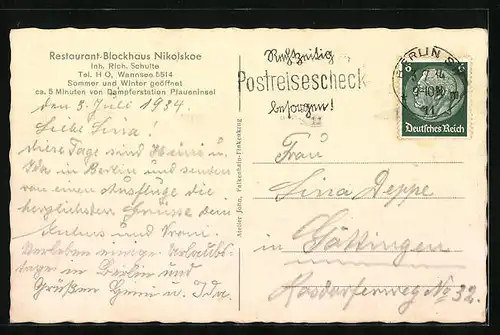 Restaurant-Blockhaus Nikolskoe
Inh. Rich. Schulte
Tel. H 0, Wannsee 5514
Sommer und Winter geöffnet
ca. 5 Minuten von Dampferstation Pfaueninsel
den 5. Juli 1934
Liebe Lina!
diese Tage sind Heini u.
Ida in Berlin und senden
von einem Ausfluge die
herzlichsten Grüsse dein
und Frau.
Verleben einige Urlaubs-
tage in Berlin und
Grüßen Heini u. Ida.
Atelier John, Falkenhain-Finkenkrug
Rechtzeitig
Postreisescheck
besorgen!
BERLIN
6
6
Deutsches Reich
Frau
Lina Deppe
in Göttingen
Rosdorferweg No 32.